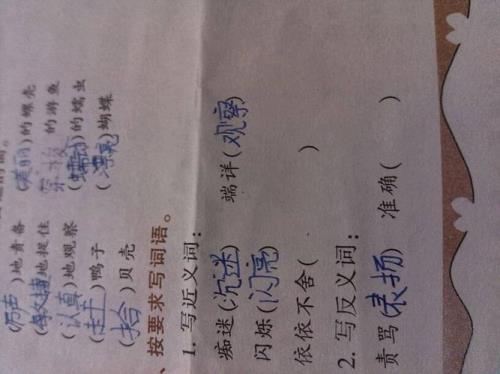 (厉声)地责备 (美丽)的螺壳
地捉住 的游鱼
(认真)地观察 (蠕动)的蠕虫
(赶)鸭子 (漂亮)蝴蝶
(拾)贝壳
、按要求写词语。
1. 写近义词：
痴迷(沉迷) 端详(观察)
闪烁(闪亮)
依依不舍( )
2. 写反义词：
责骂(表扬) 准确( )